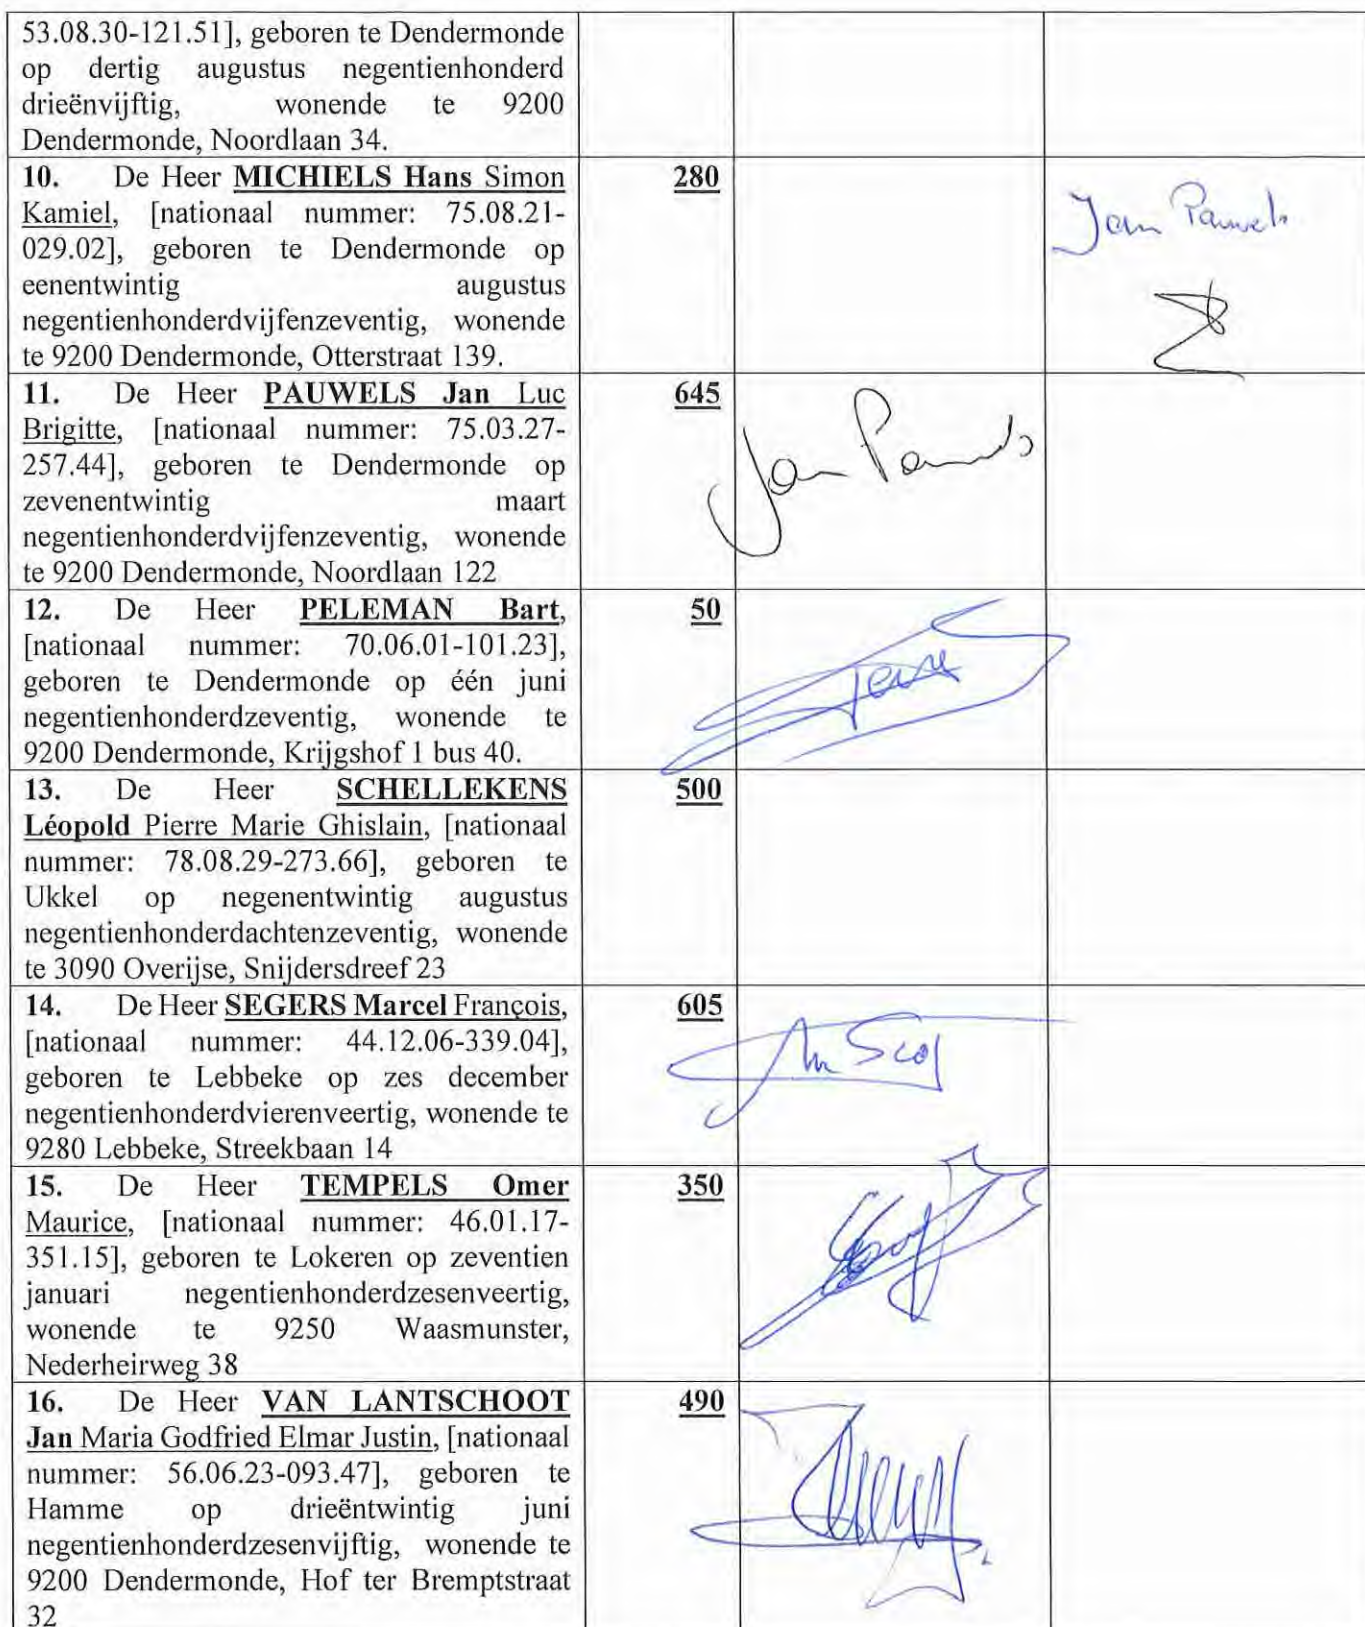 53.08.30-121.51], geboren te Dendermonde
op dertig augustus negentienhonderd
drieënvijftig, wonende te 9200
Dendermonde, Noordlaan 34.
10. De Heer MICHIELS Hans Simon 280
Kamiel, [nationaal nummer: 75.08.21-
029.02], geboren te Dendermonde op
eenentwintig augustus
negentienhonderdvijfenzeventig, wonende
te 9200 Dendermonde, Otterstraat 139.
Jan Pauwels
11. De Heer PAUWELS Jan Luc 645
Brigitte, [nationaal nummer: 75.03.27-
257.44], geboren te Dendermonde op
zevenentwintig maart
negentienhonderdvijfenzeventig, wonende
te 9200 Dendermonde, Noordlaan 122
Jan Pauwels
12. De Heer PELEMAN Bart, 50
[nationaal nummer: 70.06.01-101.23],
geboren te Dendermonde op één juni
negentienhonderdzeventig, wonende te
9200 Dendermonde, Krijgshof 1 bus 40.
13. De Heer SCHELLEKENS 500
Léopold Pierre Marie Ghislain, [nationaal
nummer: 78.08.29-273.66], geboren te
Ukkel op negenentwintig augustus
negentienhonderdachtenzeventig, wonende
te 3090 Overijse, Snijdersdreef 23
14. De Heer SEGERS Marcel François, 605
[nationaal nummer: 44.12.06-339.04],
geboren te Lebbeke op zes december
negentienhonderdvierenveertig, wonende te
9280 Lebbeke, Streekbaan 14
15. De Heer TEMPELS Omer 350
Maurice, [nationaal nummer: 46.01.17-
351.15], geboren te Lokeren op zeventien
januari negentienhonderdzesenveertig,
wonende te 9250 Waasmunster,
Nederheirweg 38
16. De Heer VAN LANTSCHOOT 490
Jan Maria Godfried Elmar Justin, [nationaal
nummer: 56.06.23-093.47], geboren te
Hamme op drieëntwintig juni
negentienhonderdzesenvijftig, wonende te
9200 Dendermonde, Hof ter Bremptstraat
32